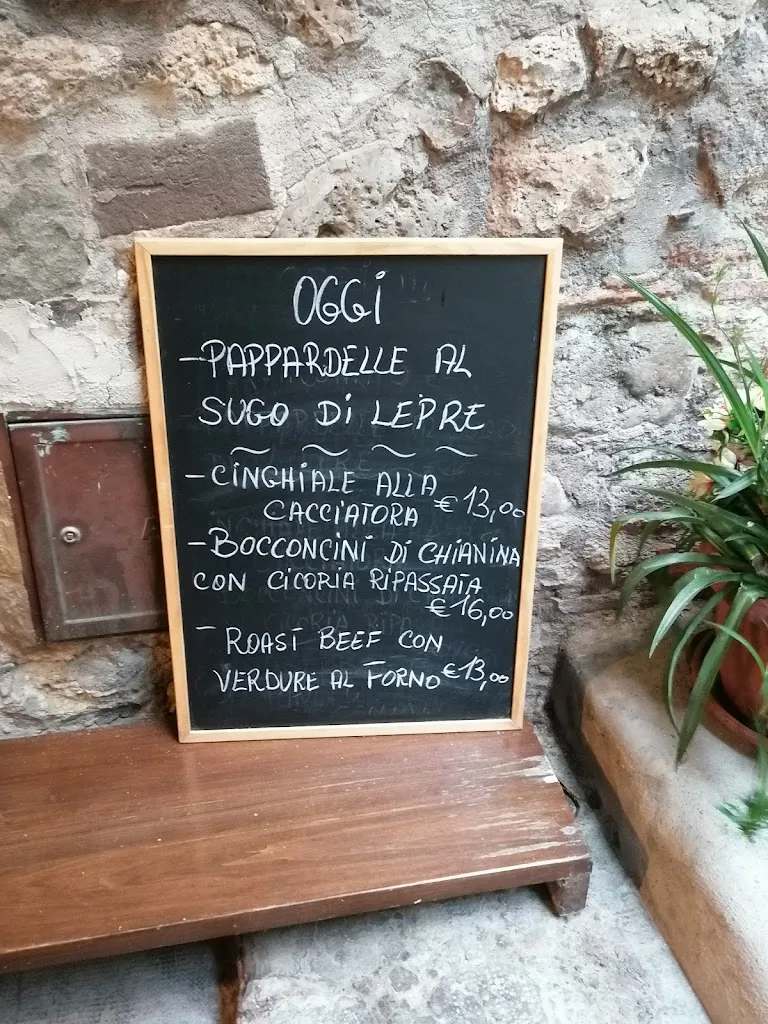 OGGI
-PAPPARDELLE AL
SUGO DI LEPRE
~ ~ ~ ~
-CINGHIALE ALLA
CACCIATORA € 13,00
-BOCCONCINI DI CHIANINA
CON CICORIA RIPASSATA
€ 16,00
- ROAST BEEF CON
VERDURE AL FORNO € 13,00